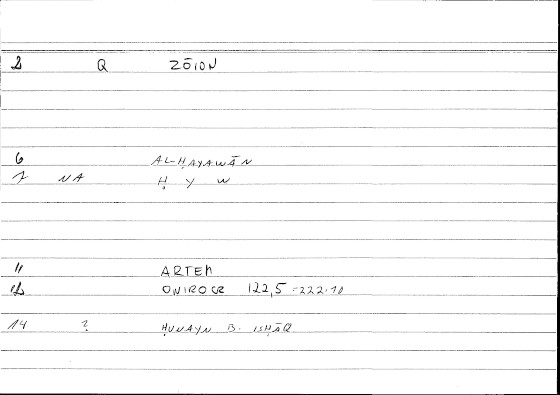 2 Q ZŌION
6 AL-ḤAYAWĀN
7 NA Ḥ Y W
11 ARTEM
12 ONIROCR 122,5 = 222.10
14 ? ḤUNAYN B. ISḤĀQ